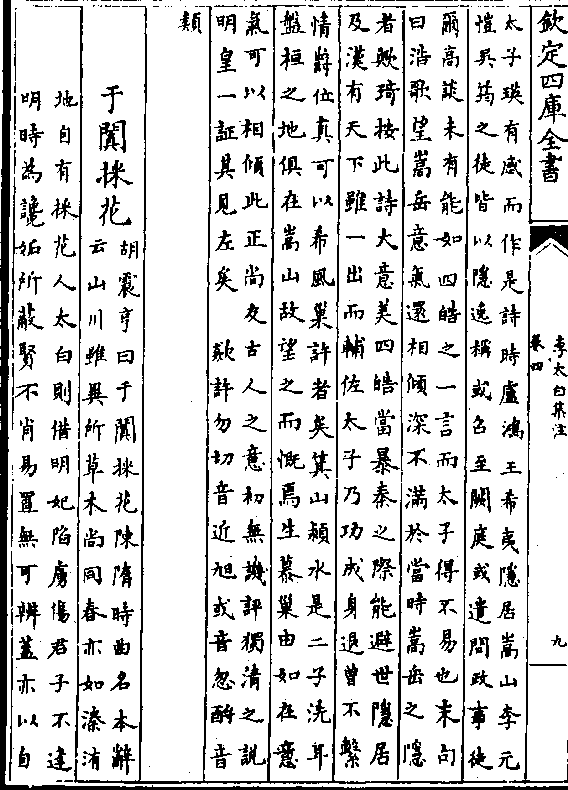 欽定四庫全書
李太白集注
卷四
九
太子瑛有感而作是詩時盧鴻王希夷隱居嵩山李元
愷吳筠之徒皆以隱逸稱或召至闕庭或遣問政事徒
爾高談未有能如四皓之一言而太子得不易也末句
曰浩歌望嵩岳意氣還相傾深不滿於當時嵩岳之隱
者歟琦按此詩大意美四皓當暴秦之際能避世隱居
及漢有天下雖一出而輔佐太子乃功成身退曾不繫
情爵位真可以希風巢許者矣箕山潁水是二子洗耳
盤桓之地俱在嵩山故望之而慨焉生慕巢由如在意
氣可以相傾此正尚友古人之意初無譏評獨清之說
明皇一証其見左矣 欻許勿切音近旭或音忽酹音
類
于闐採花
胡震亨曰于闐採花陳隋時曲名本辭
云山川雖異所草木尚同春亦如溱洧
地自有採花人太白則借明妃陷虜傷君子不逢
明時為讒妬所蔽賢不肖易置無可辨蓋亦以自